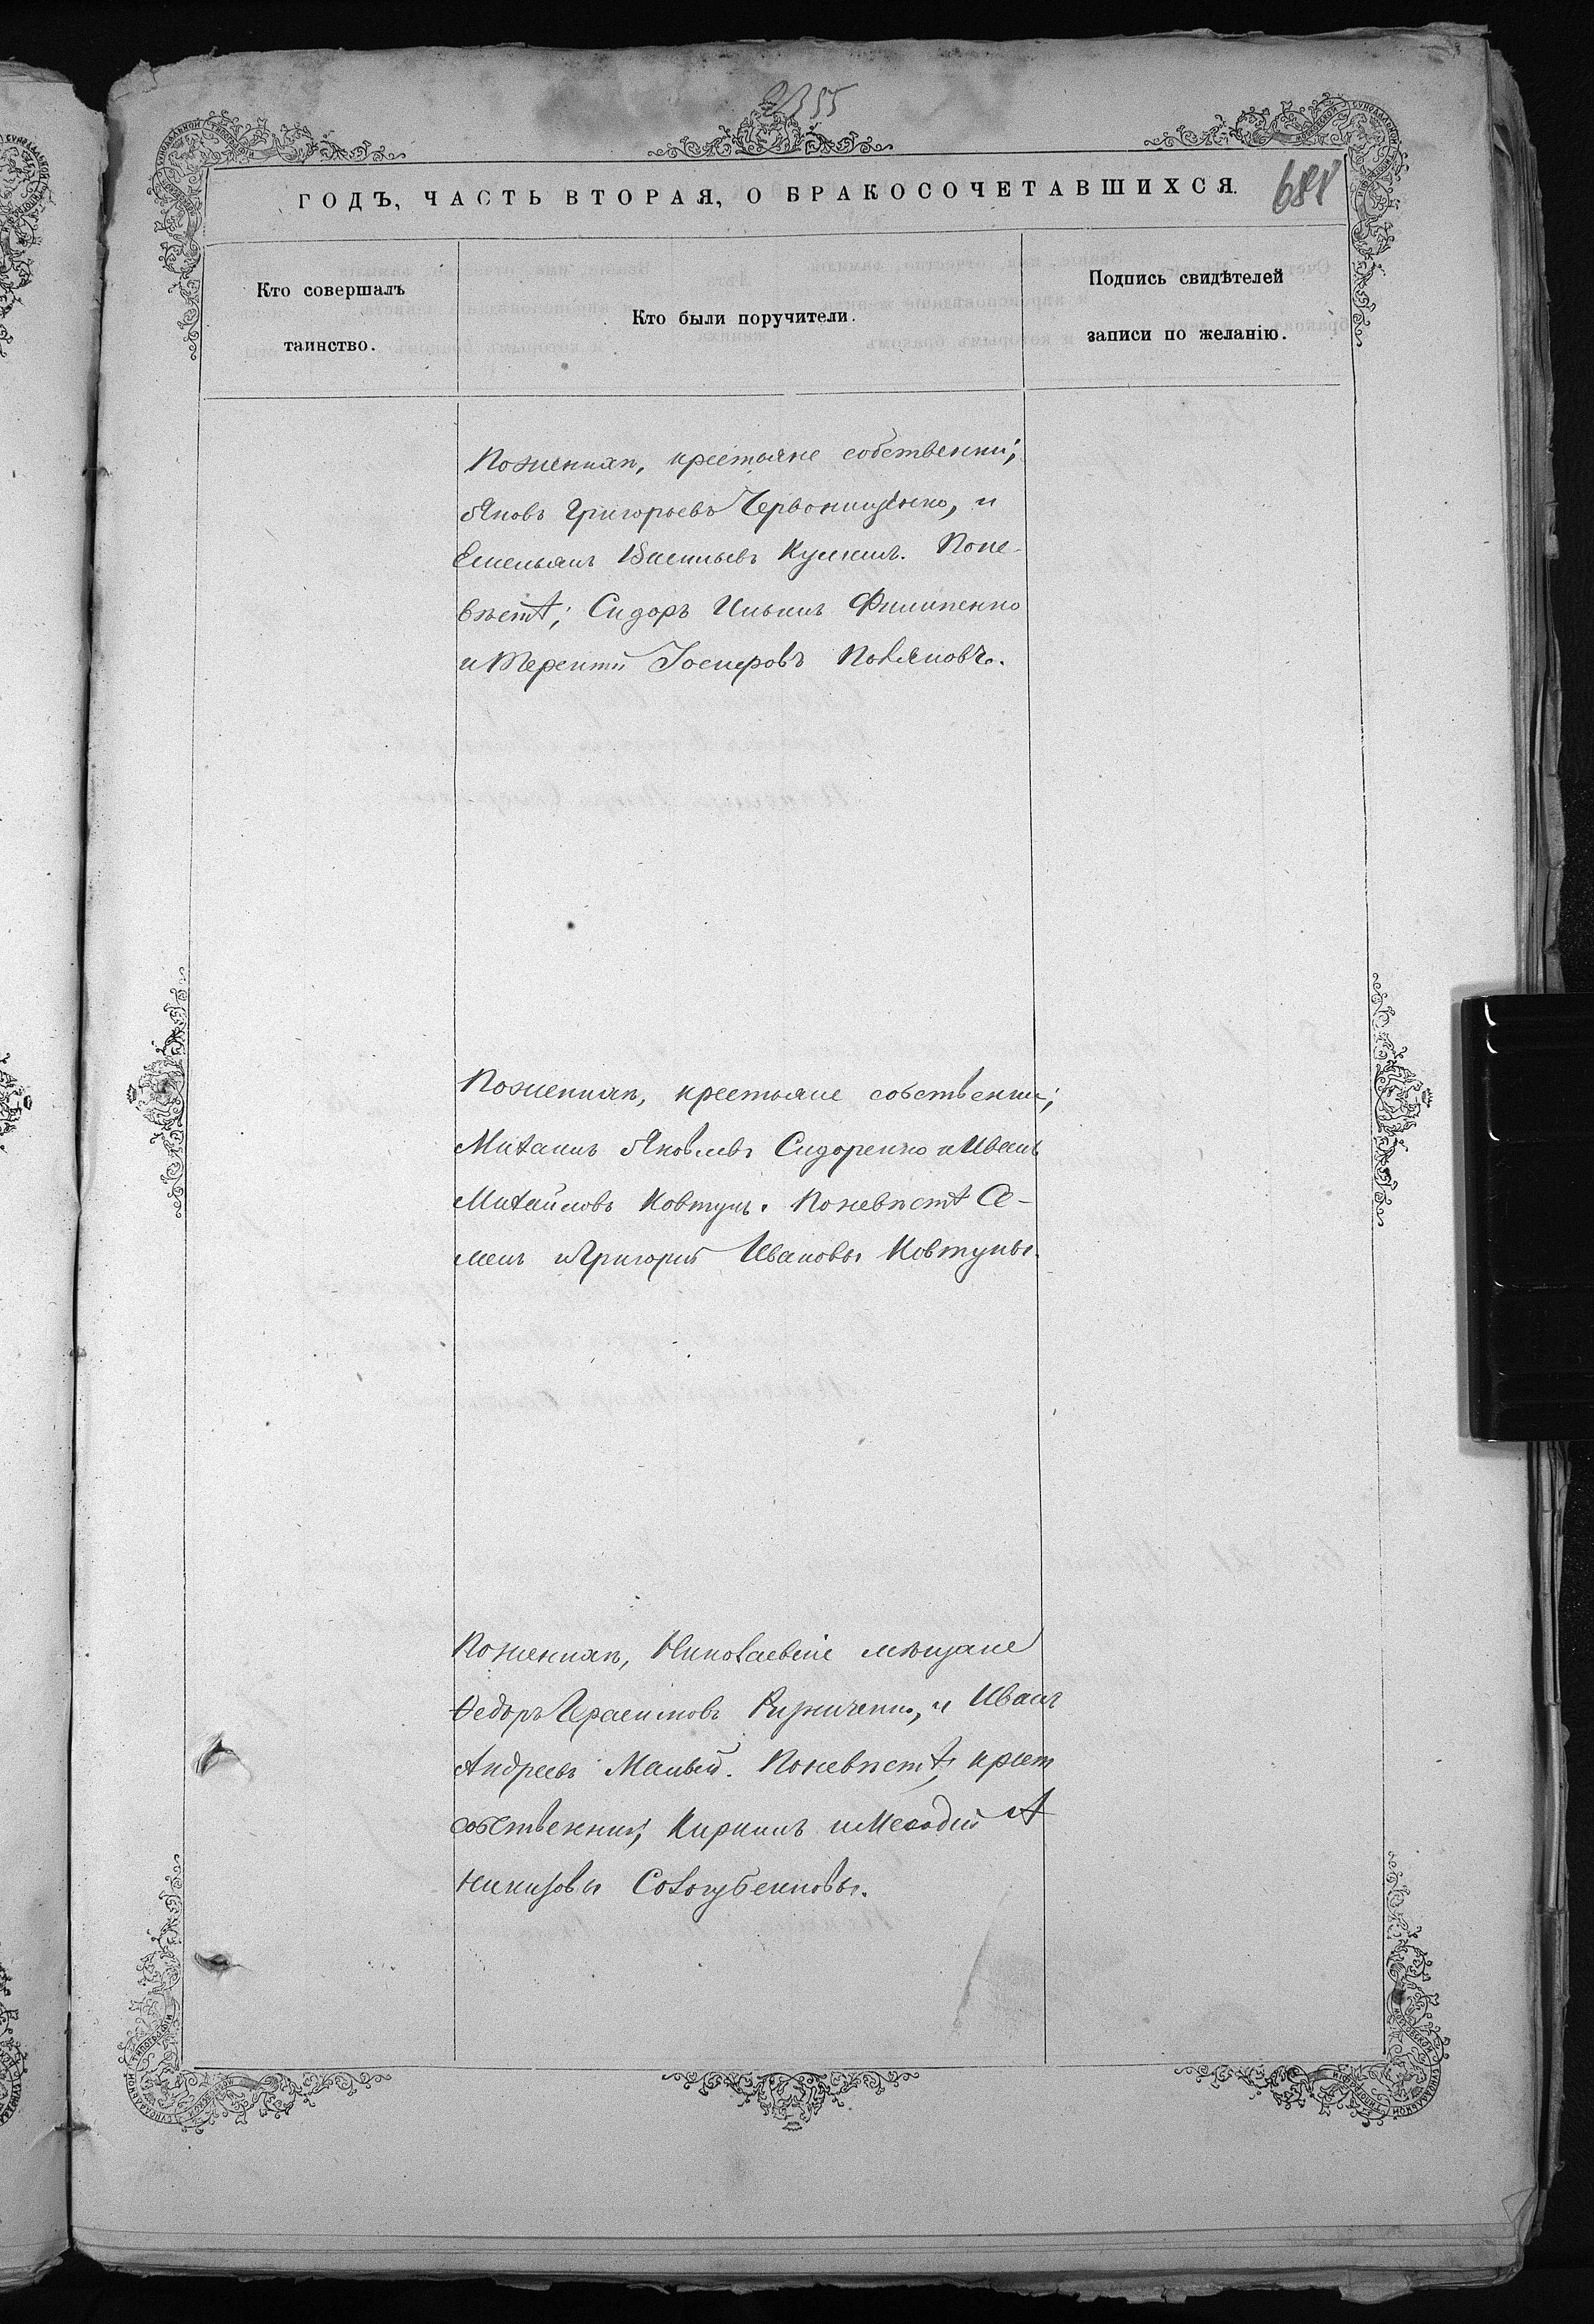 2355
ГОДЪ, ЧАСТЬ ВТОРАЯ, О БРАКОСОЧЕТАВШИХСЯ.
Кто совершалъ
таинство.
Кто были поручители.
Подпись свидѣтелей
записи по желанію.
Поженихѣ, крестьяне собственни;
Яковъ Григорьевъ Червонищенко, и
Емельянъ Васильевъ Кулишъ. Поне-
вѣстѣ; Сидоръ Ильинъ Филипенко
и Терентій Іосифовъ
Поженихѣ, крестьяне собственни;
Михаилъ Яковлевъ Сидоренко и Иванъ
Михайловъ Ковтунъ. Поневѣстѣ Се-
менъ и Григорій Ивановы Ковтуны.
Поженихѣ, Николаевскіе мѣщане
Федоръ Герасимовъ Ризниченко, и Иванъ
Андреевъ Малый. Поневѣстѣ, крест
собственни; Кирилъ и Мефодій
Сологубенковы.